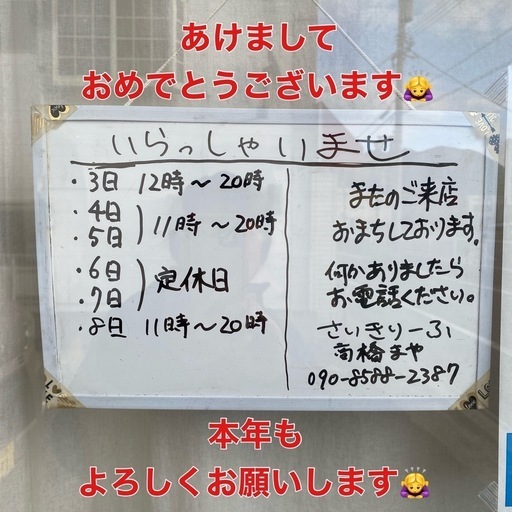 あけまして
おめでとうございます🙇‍♀️
いらっしゃいませ
・3日 12時〜20時
・4日
・5日 ) 11時〜20時
・6日
・7日 ) 定休日
・8日 11時〜20時
またのご来店
おまちしております。
何かありましたら
お電話ください。
さいきりーふ
高橋まや
090-8588-2387
本年も
よろしくお願いします🙇‍♀️